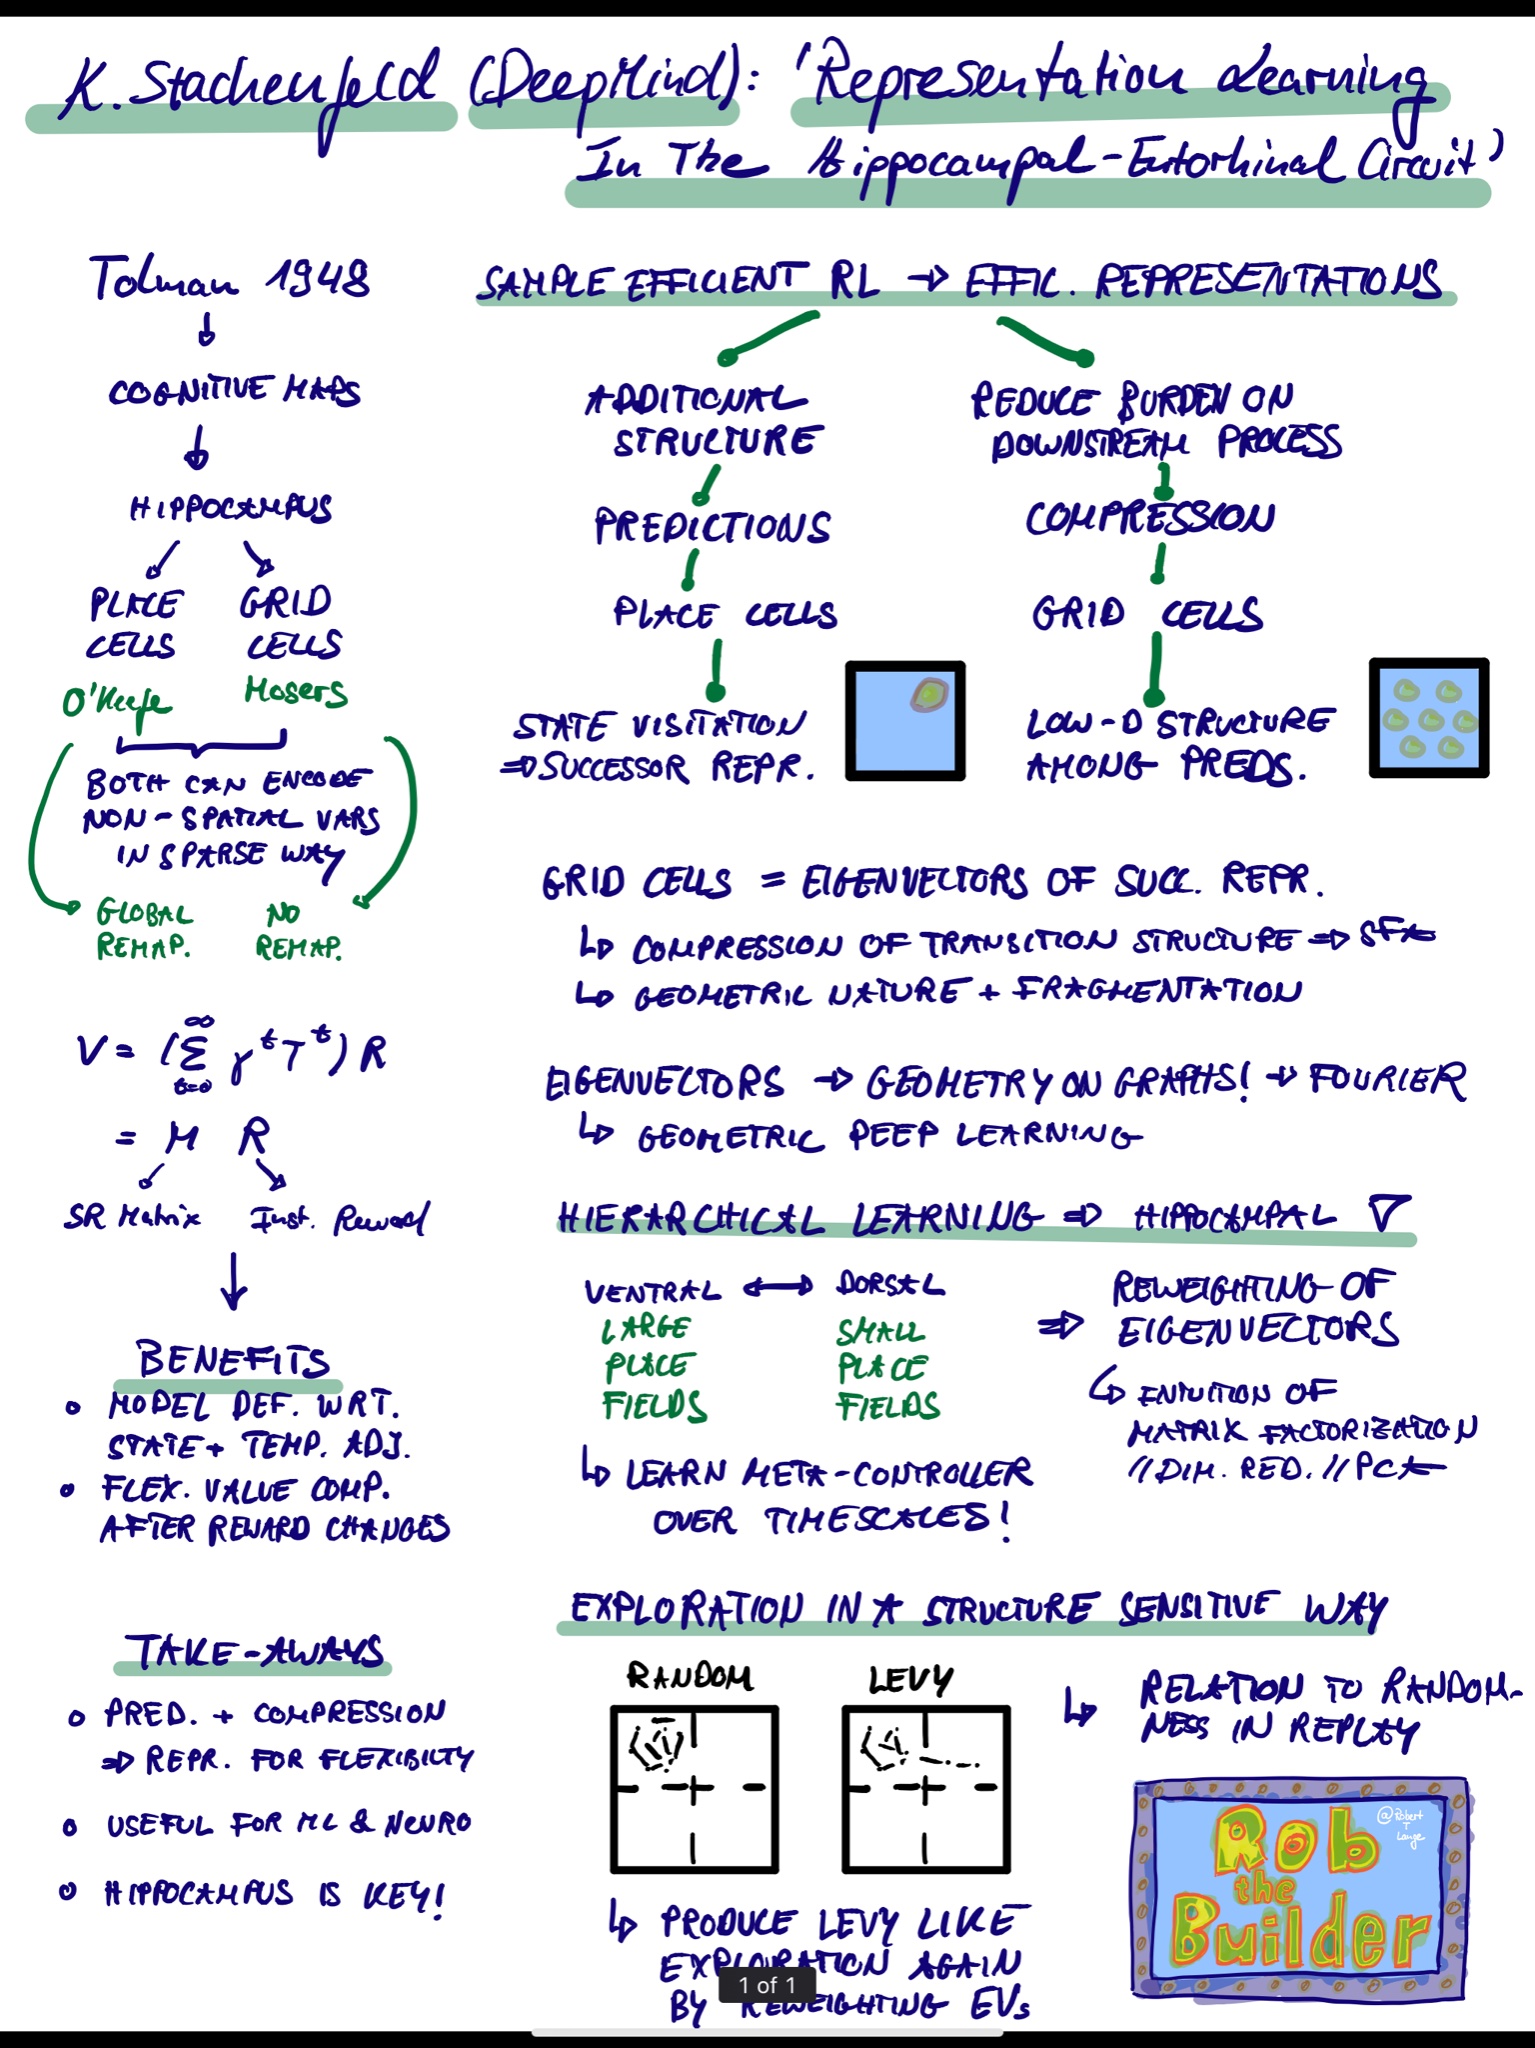 K. Stachenfeld (DeepMind): 'Representation Learning
In The Hippocampal-Entorhinal Circuit'
Tolman 1948
COGNITIVE MAPS
HIPPOCAMPUS
PLACE CELLS
GRID CELLS
O'Keefe
Mosers
BOTH CAN ENCODE
NON-SPATIAL VARS
IN SPARSE WAY
GLOBAL REMAP.
NO REMAP.
V = (∑ γ^t T^t) R
∞
t=0
= M R
SR Matrix
Inst. Reward
BENEFITS
• MODEL DEF. WRT.
STATE + TEMP. ADJ.
• FLEX. VALUE COMP.
AFTER REWARD CHANGES
TAKE-AWAYS
• PRED. + COMPRESSION
⇒ REPR. FOR FLEXIBILTY
• USEFUL FOR ML & NEURO
• HIPPOCAMPUS IS KEY!
SAMPLE EFFICIENT RL → EFFIC. REPRESENTATIONS
ADDITIONAL
STRUCTURE
PREDICTIONS
PLACE CELLS
STATE VISITATION
⇒ SUCCESSOR REPR.
REDUCE BURDEN ON
DOWNSTREAM PROCESS
COMPRESSION
GRID CELLS
LOW-D STRUCTURE
AMONG PREDS.
GRID CELLS = EIGENVECTORS OF SUCC. REPR.
↳ COMPRESSION OF TRANSITION STRUCTURE ⇒ SFA
↳ GEOMETRIC NATURE + FRAGMENTATION
EIGENVECTORS → GEOMETRY ON GRAPHS! → FOURIER
↳ GEOMETRIC DEEP LEARNING
HIERARCHICAL LEARNING ⇒ HIPPOCAMPAL ∇
VENTRAL ↔ DORSAL
LARGE PLACE FIELDS
SMALL PLACE FIELDS
⇒ REWEIGHTING OF
EIGENVECTORS
↳ INTUITION OF
MATRIX FACTORIZATION
// DIM. RED. // PCA
↳ LEARN META-CONTROLLER
OVER TIMESCALES!
EXPLORATION IN A STRUCTURE SENSITIVE WAY
RANDOM
LEVY
↳ RELATION TO RANDOM-
NESS IN REPLAY
↳ PRODUCE LEVY LIKE
EXPLORATION AGAIN
BY REWEIGHTING EVs
1 of 1
@Robert
T
Lange
Rob
the
Builder